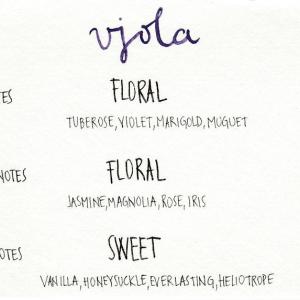 vjola
TES FLORAL
TUBEROSE, VIOLET, MARIGOLD, MUGUET
NOTES FLORAL
JASMINE, MAGNOLIA, ROSE, IRIS
NOTES SWEET
VANILLA, HONEYSUCKLE, EVERLASTING, HELIOTROPE